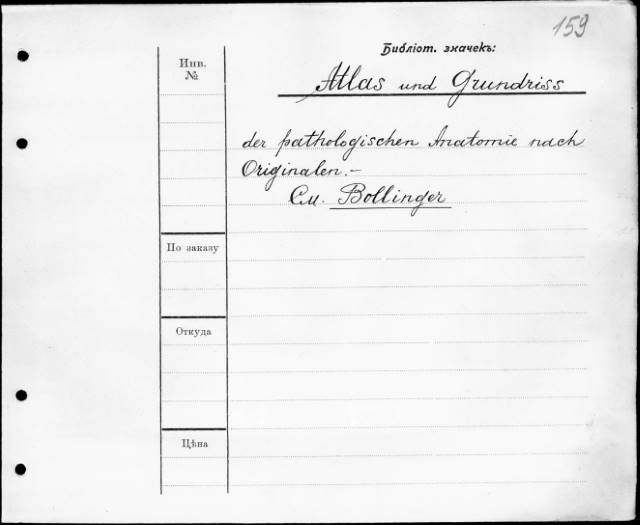 159
Библіот. значекъ:
Инв.
№
Atlas und Grundriss
der pathologischen Anatomie nach
Originalen.-
См. Bollinger
По заказу
Откуда
Цѣна